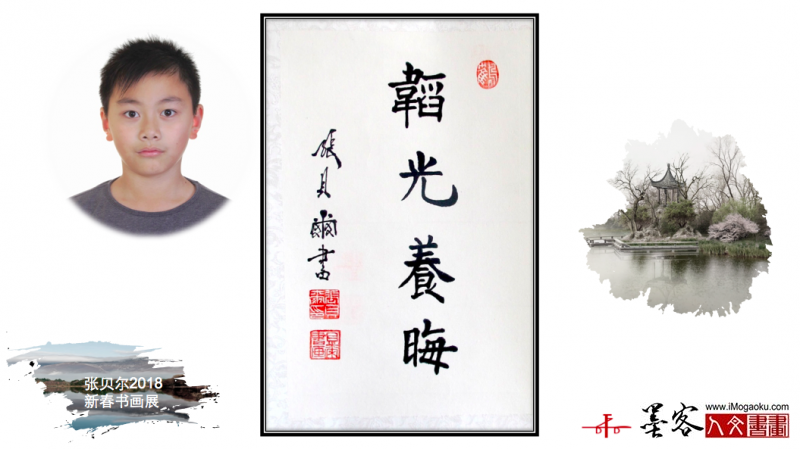 韜光養晦
張貝爾書
张贝尔2018
新春书画展
墨客
www.iMogaoku.com
人文書畫